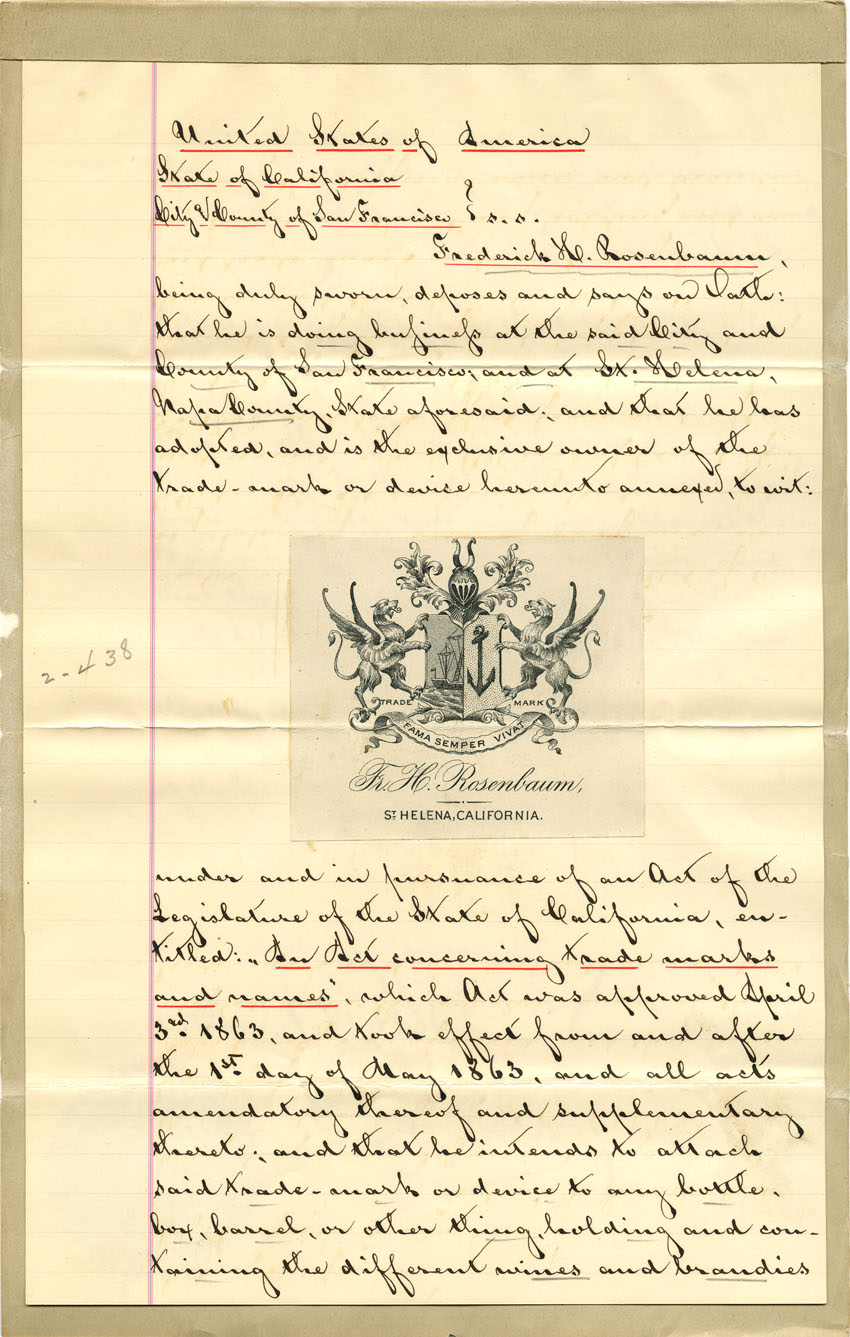 United States of America
State of California
City & County of San Francisco } s.s.
Frederick H. Rosenbaum,
being duly sworn, deposes and says on Oath:
that he is doing business at the said City and
County of San Francisco; and at St. Helena,
Napa County, State aforesaid; and that he has
adopted, and is the exclusive owner of the
trade-mark or devise hereunto annexed, to wit:
TRADE MARK
FAMA SEMPER VIVAT
Fr. H. Rosenbaum,
ST. HELENA, CALIFORNIA.
2-438
under and in pursuance of an Act of the
Legislature of the State of California, en-
titled: „An Act concerning trade marks
and names", which Act was approved April
3rd. 1863, and took effect from and after
the 1st. day of May 1863, and all acts
amendatory thereof and supplementary
thereto; and that he intends to attach
said trade-mark or device to any bottle,
box, barrel, or other thing, holding and con-
taining the different wines and brandies